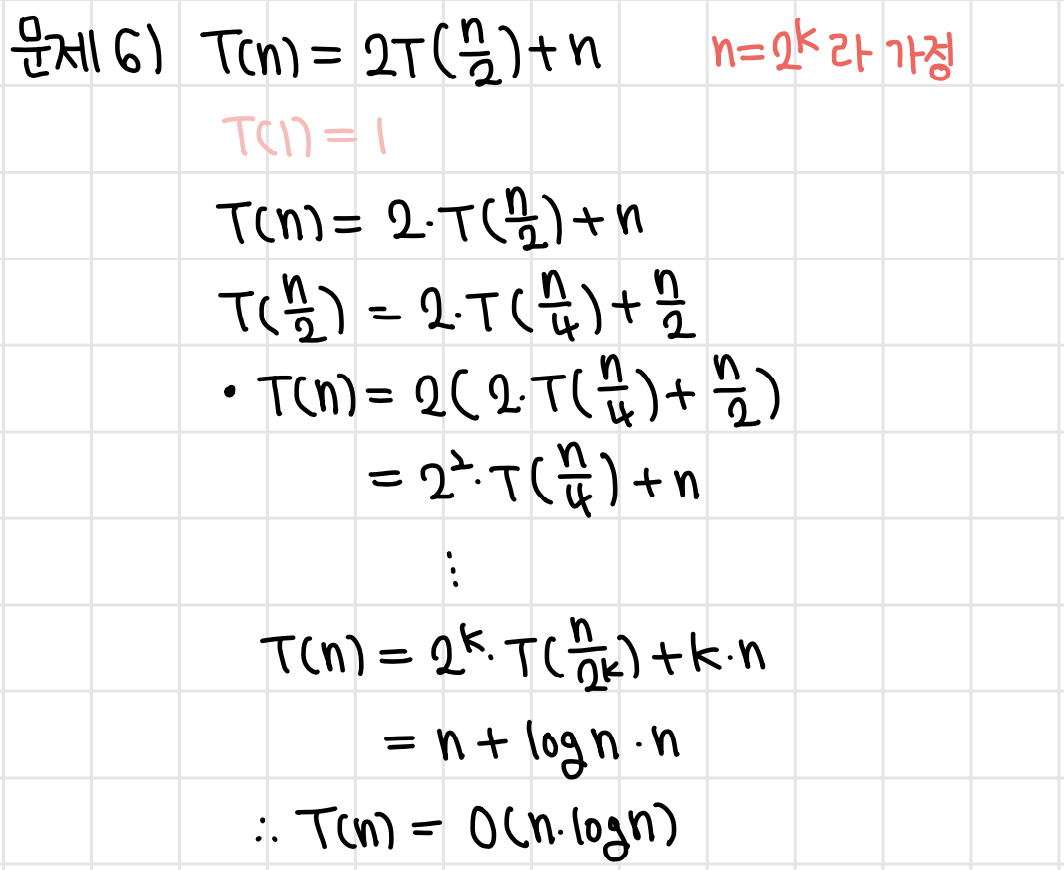 문제 6) T(n) = 2T(n/2) + n n=2^k 라 가정
T(1) = 1
T(n) = 2·T(n/2) + n
T(n/2) = 2·T(n/4) + n/2
• T(n) = 2(2·T(n/4) + n/2)
= 2^2·T(n/4) + n
⋮
T(n) = 2^k·T(n/2^k) + k·n
= n + logn·n
∴ T(n) = O(n·logn)